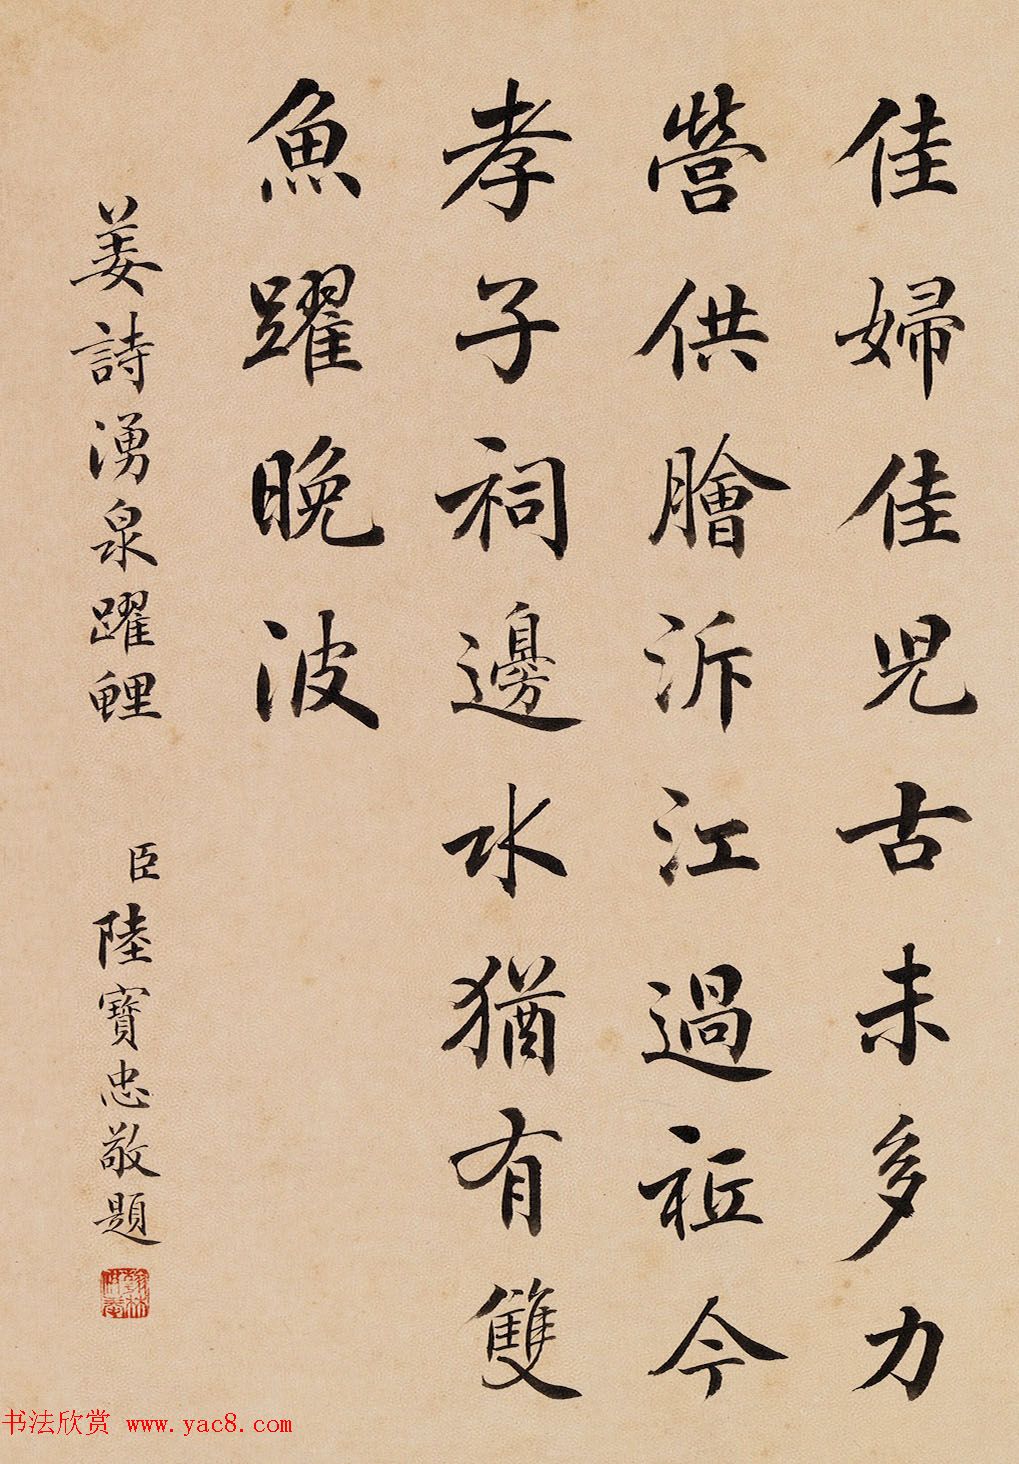 佳婦佳兒古未多力
營供膾泝江過祗今
孝子祠邊水猶有雙
魚躍晚波
姜詩湧泉躍鯉
臣陸寶忠敬題
翰林供奉
书法欣赏 www.yac8.com